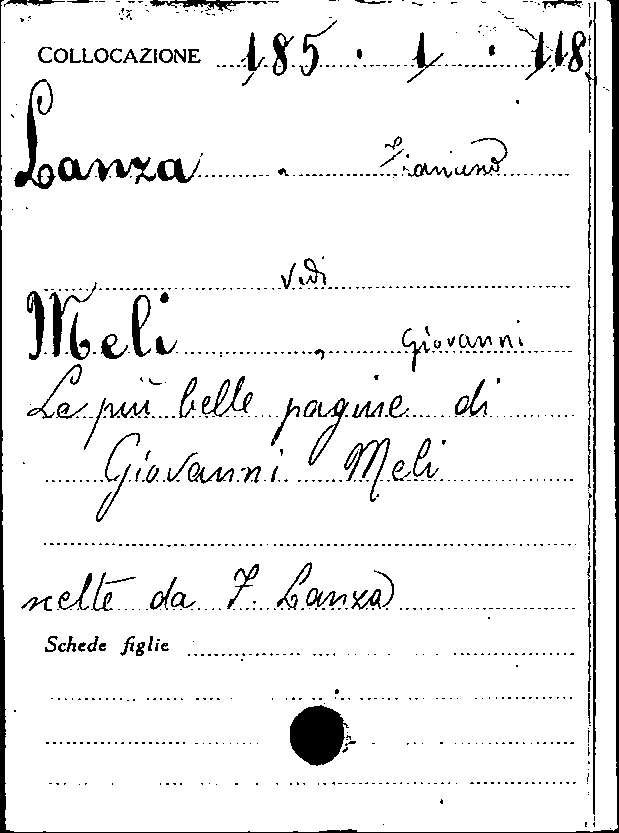 COLLOCAZIONE 185 . 1 . 118
Lanza ,
vedi
Meli , Giovanni
Le più belle pagine di
Giovanni Meli
scelte da F. Lanza
Schede figlie